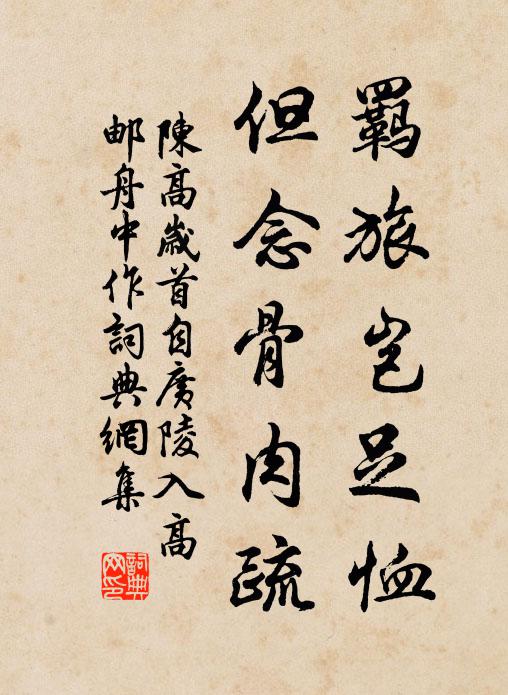 羈旅豈足恤
但念骨肉疏
陳高歲首自廣陵入高
邮舟中作詞典網集
詞典
网印